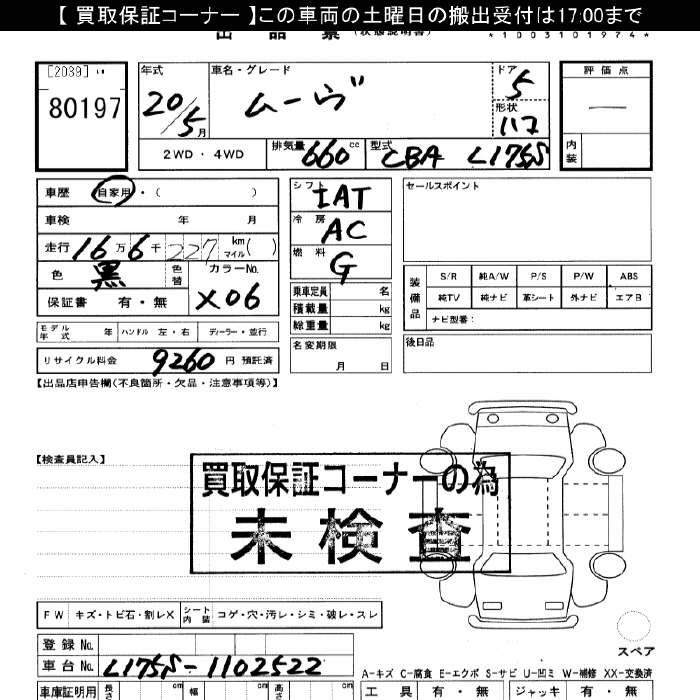 【 買取保証コーナー 】この車両の土曜日の搬出受付は17:00まで
出 品 票 (状態説明書) *1003101974*
[2039]
80197
年式 20/5月
車名・グレード ムーヴ
ドア 5
形状 117
評価点 —
内装
2WD ・ 4WD
排気量 660 cc
型式 CBA L175S
車歴 自家用 ・ ( )
車検 年 月
走行 16万6千227 km マイル( )
色 黒
色替
カラーNo. X06
保証書 有・無
モデル年式 年
ハンドル 左・右
ディーラー・並行
リサイクル料金 9260 円 預託済
シフト IAT
冷房 AC
燃料 G
乗車定員 名
積載量 kg
総重量 kg
名変期限 月 日
セールスポイント
装備品
S/R 純A/W P/S P/W ABS
純TV 純ナビ 革シート 外ナビ エアB
ナビ型番:
後日品
【出品店申告欄(不良箇所・欠品・注意事項等)】
【検査員記入】
買取保証コーナーの為
未検査
FW キズ・トビ石・割レX
シート内装 コゲ・穴・汚レ・シミ・破レ・スレ
スペア
登録 No.
車台 No. L175S-1102522
A-キズ C-腐食 E-エクボ S-サビ U-凹ミ W-補修 XX-交換済
車庫証明用 長さ cm 幅 cm 高さ cm
工具 有・無 ジャッキ 有・無